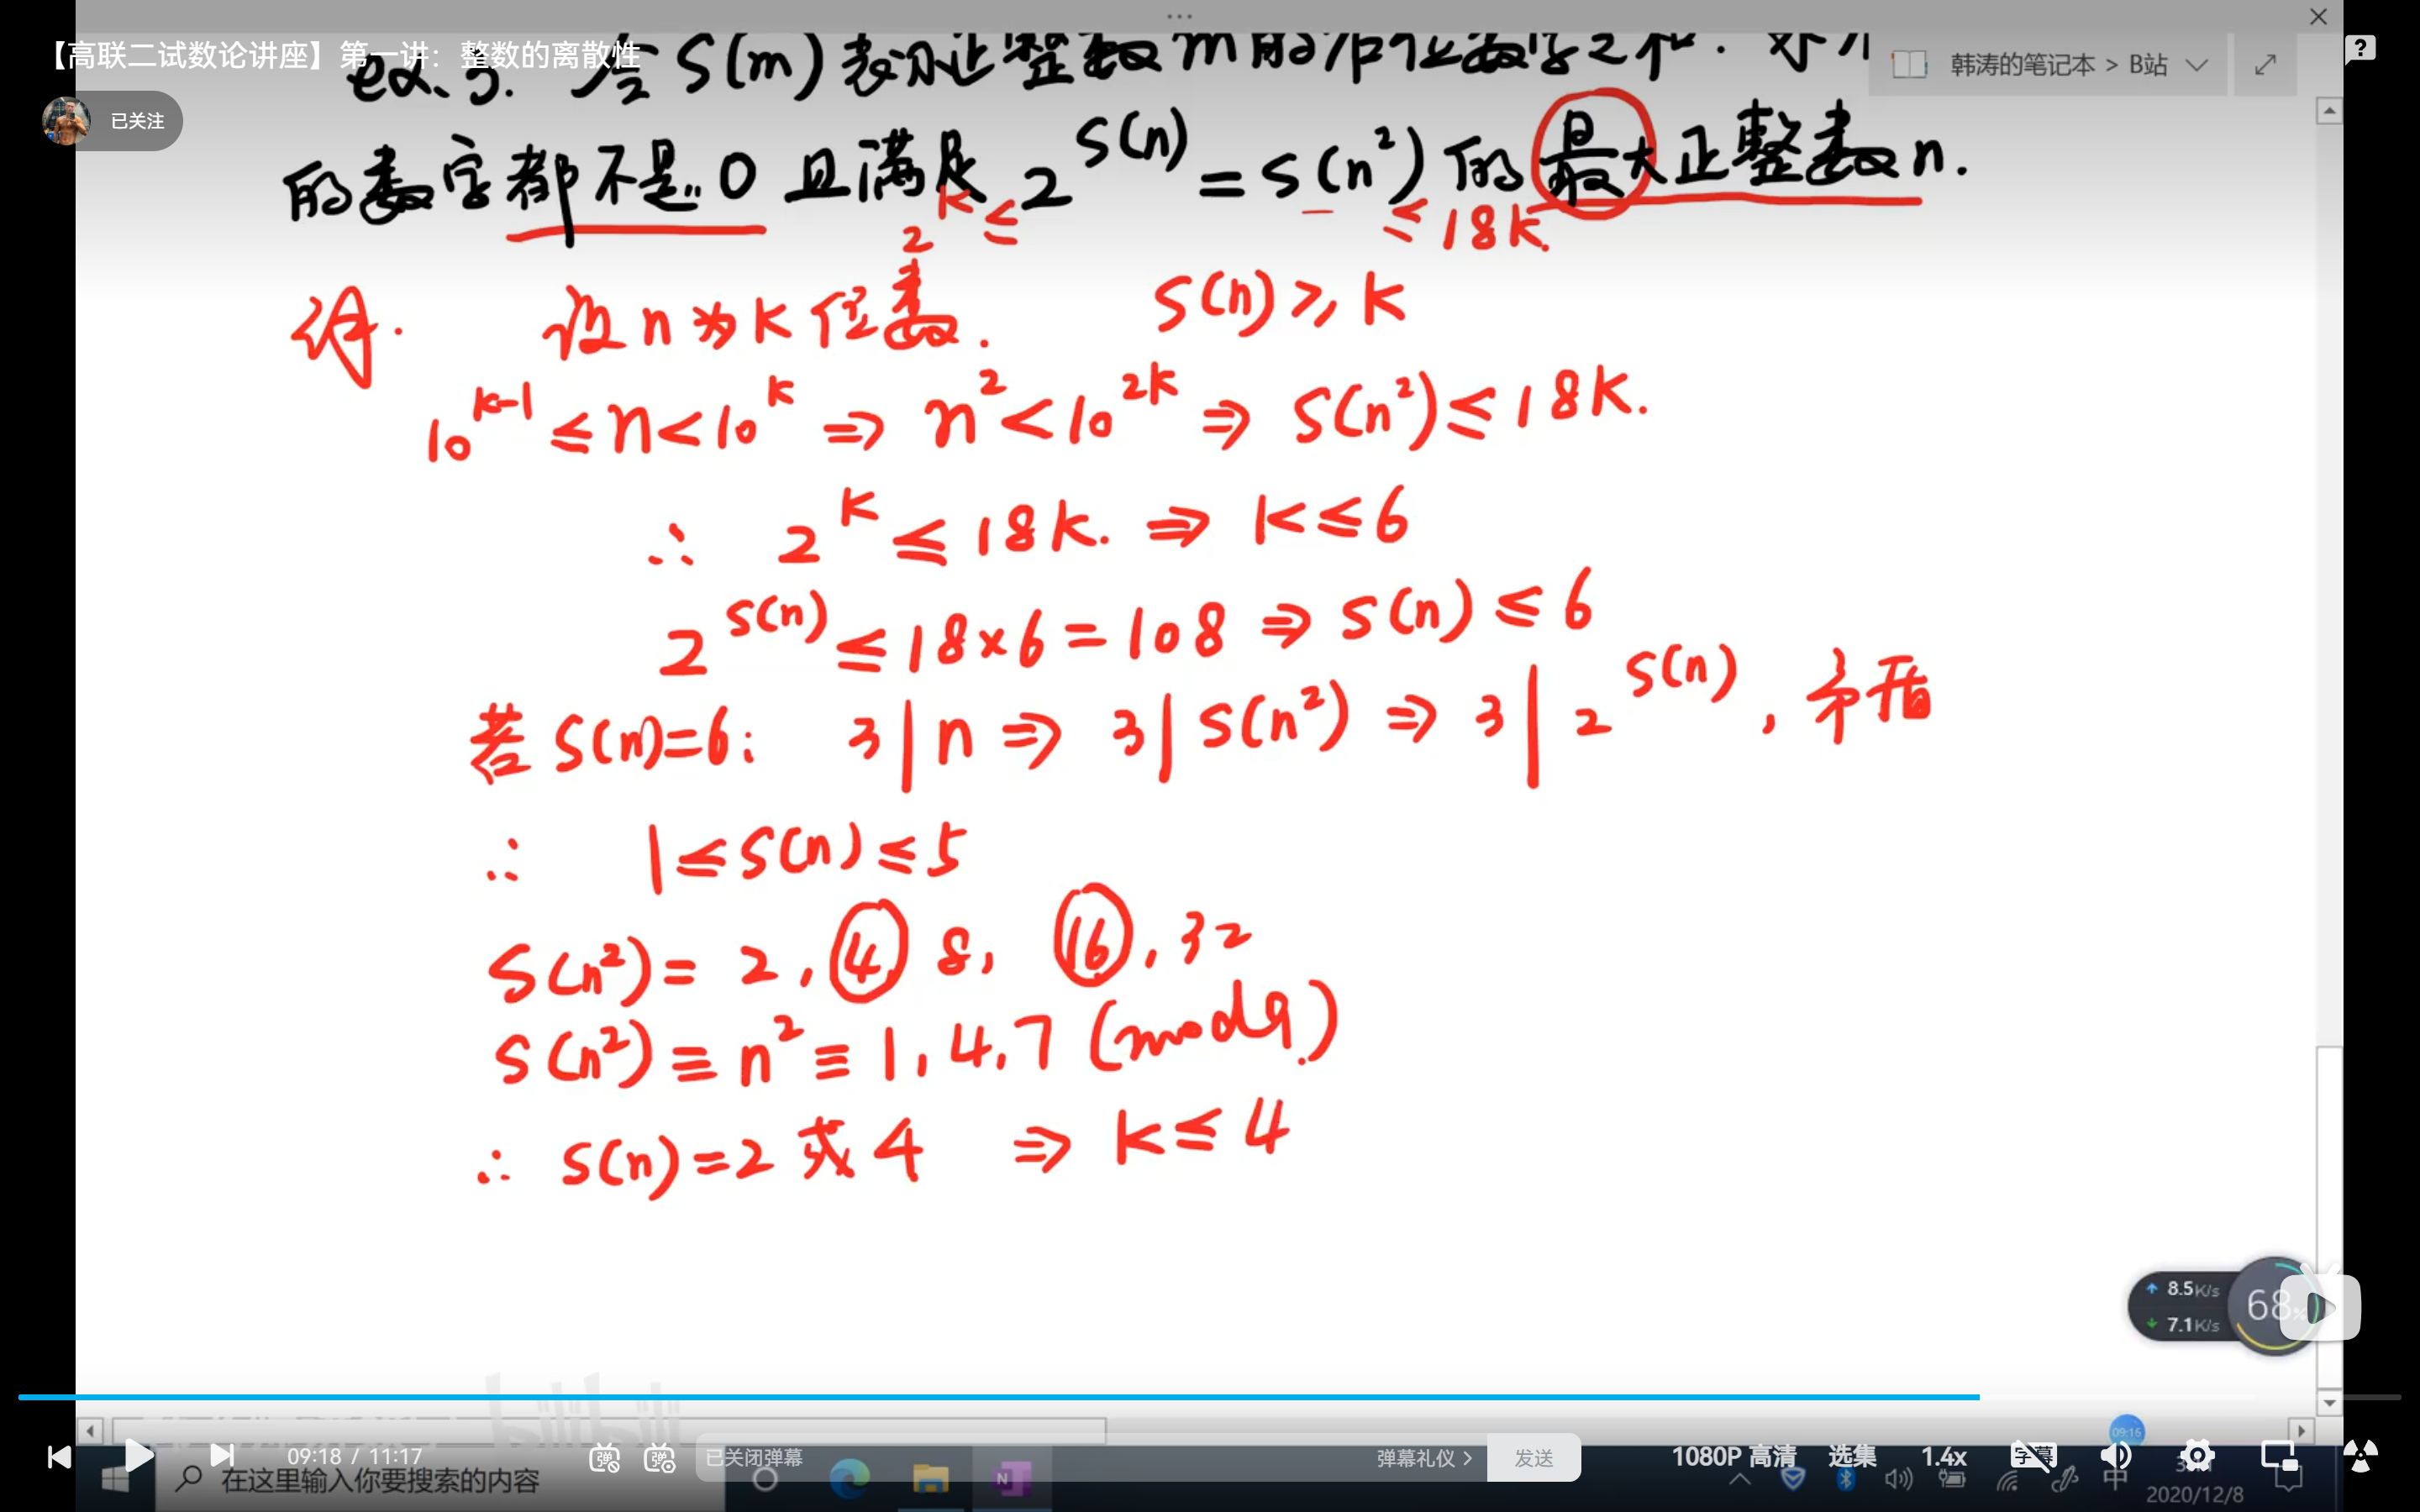 【高联二试数论讲座】第一讲：整数的离散性
ex、3. 令S(m)表示正整数m的各位数字之和. 求
韩涛的笔记本 > B站
已关注
的数字都不是0且满足 2^{S(n)} = S(n²) 的最大正整数n.
2^k ≤ ≤ 18k.
译. 设n为k位数. S(n) ≥ k
10^{k-1} ≤ n < 10^k ⇒ n² < 10^{2k} ⇒ S(n²) ≤ 18k.
∴ 2^k ≤ 18k. ⇒ k ≤ 6
2^{S(n)} ≤ 18×6 = 108 ⇒ S(n) ≤ 6
若 S(n)=6: 3|n ⇒ 3|S(n²) ⇒ 3|2^{S(n)}, 矛盾
∴ 1 ≤ S(n) ≤ 5
S(n²) = 2, 4, 8, 16, 32
S(n²) ≡ n² ≡ 1, 4, 7 (mod 9.)
∴ S(n)=2 或 4 ⇒ k ≤ 4
8.5K/s
7.1K/s
68%
bilibili
09:16
09:18 / 11:17
已关闭弹幕
弹幕礼仪 >
发送
1080P 高清
选集
1.4x
字幕
在这里输入你要搜索的内容
中
2020/12/8